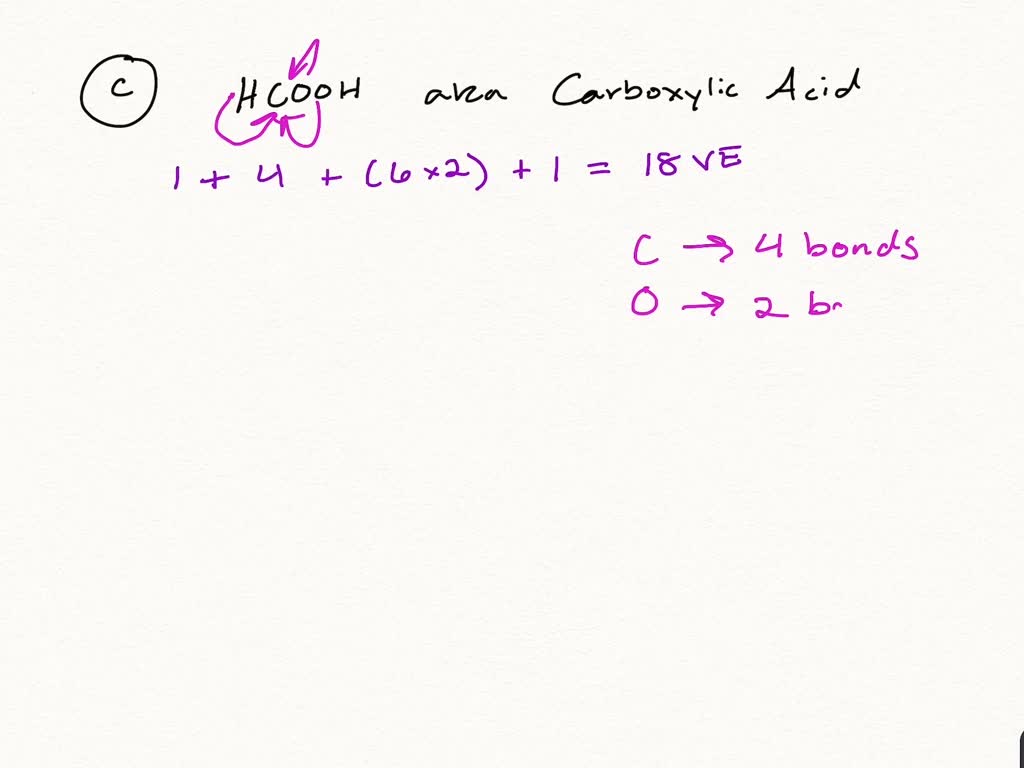 C HCOOH aka Carboxylic Acid
1 + 4 + (6×2) + 1 = 18 VE
C → 4 bonds
O → 2 bo